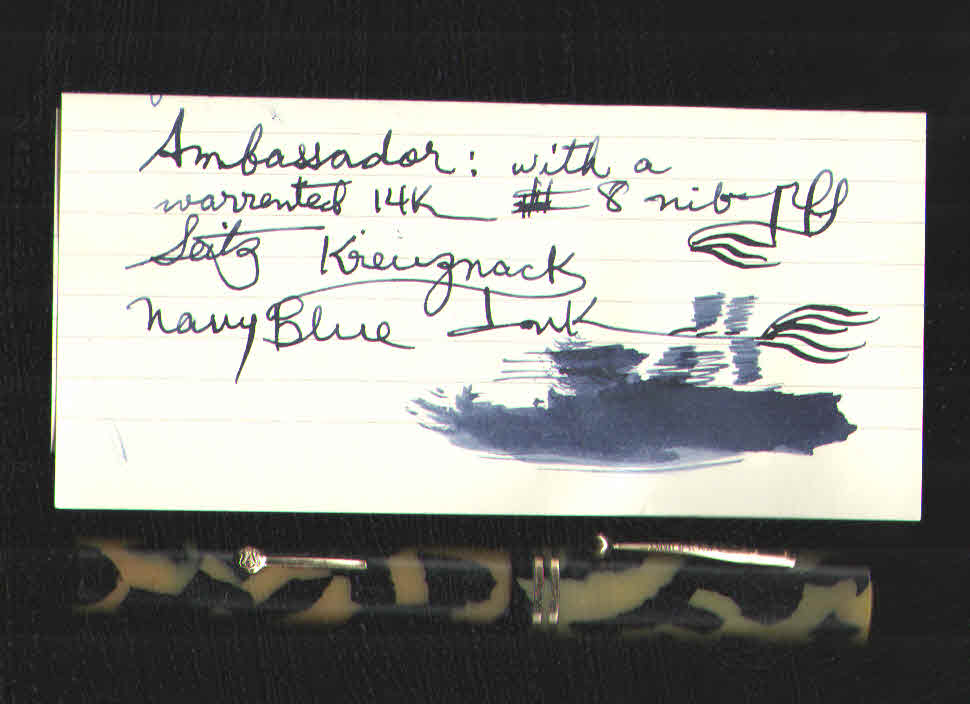 Ambassador: with a
warrented 14K # 8 nib
Seitz Kreuznack
Navy Blue Ink